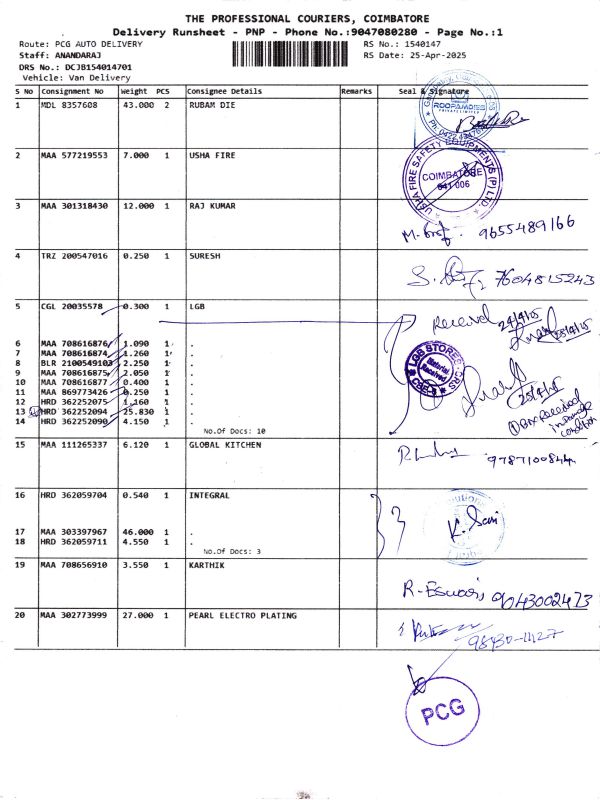 THE PROFESSIONAL COURIERS, COIMBATORE
Delivery Runsheet - PNP - Phone No.:9047080280 - Page No.:1
Route: PCG AUTO DELIVERY RS No.: 1540147
Staff: ANANDARAJ RS Date: 25-Apr-2025
DRS No.: DCJB154014701
Vehicle: Van Delivery
S No Consignment No Weight PCS Consignee Details Remarks Seal & Signature
1 MDL 8357608 43.000 2 RUBAM DIE
ROOFAMDIES
PRIVATE LIMITED
2 MAA 577219553 7.000 1 USHA FIRE
USHA FIRE SAFETY EQUIPMENTS (P) LTD.
COIMBATORE
641 006
3 MAA 301318430 12.000 1 RAJ KUMAR
9655489166
4 TRZ 200547016 0.250 1 SURESH
7604815243
5 CGL 20035578 0.300 1 LGB
Received 24/4/25
6 MAA 708616876 1.090 1 .
7 MAA 708616874 1.260 1 .
8 BLR 2100549103 2.250 1 .
9 MAA 708616875 2.050 1 .
10 MAA 708616877 0.400 1 .
11 MAA 869773426 0.250 1 .
12 HRD 362252075 1.160 1 .
13 HRD 362252094 25.830 1 .
14 HRD 362252090 4.150 1 .
No.Of Docs: 10
LGB STORES
Material
Received
25/4/25
① Box Received
in Damage
condition
15 MAA 111265337 6.120 1 GLOBAL KITCHEN
9787100844
16 HRD 362059704 0.540 1 INTEGRAL
17 MAA 303397967 46.000 1 .
18 HRD 362059711 4.550 1 .
No.Of Docs: 3
19 MAA 708656910 3.550 1 KARTHIK
9043002473
20 MAA 302773999 27.000 1 PEARL ELECTRO PLATING
98430-11127
PCG